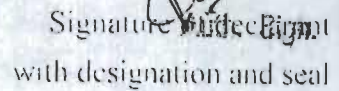 Signature
with designation and seal